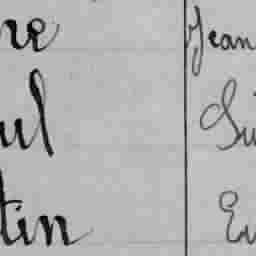 re Jean
ul Lu
tin Eu